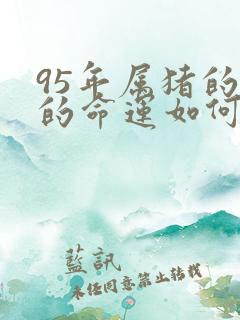 95年属猪的
的命运如何
蓝訊
未经同意禁止转载